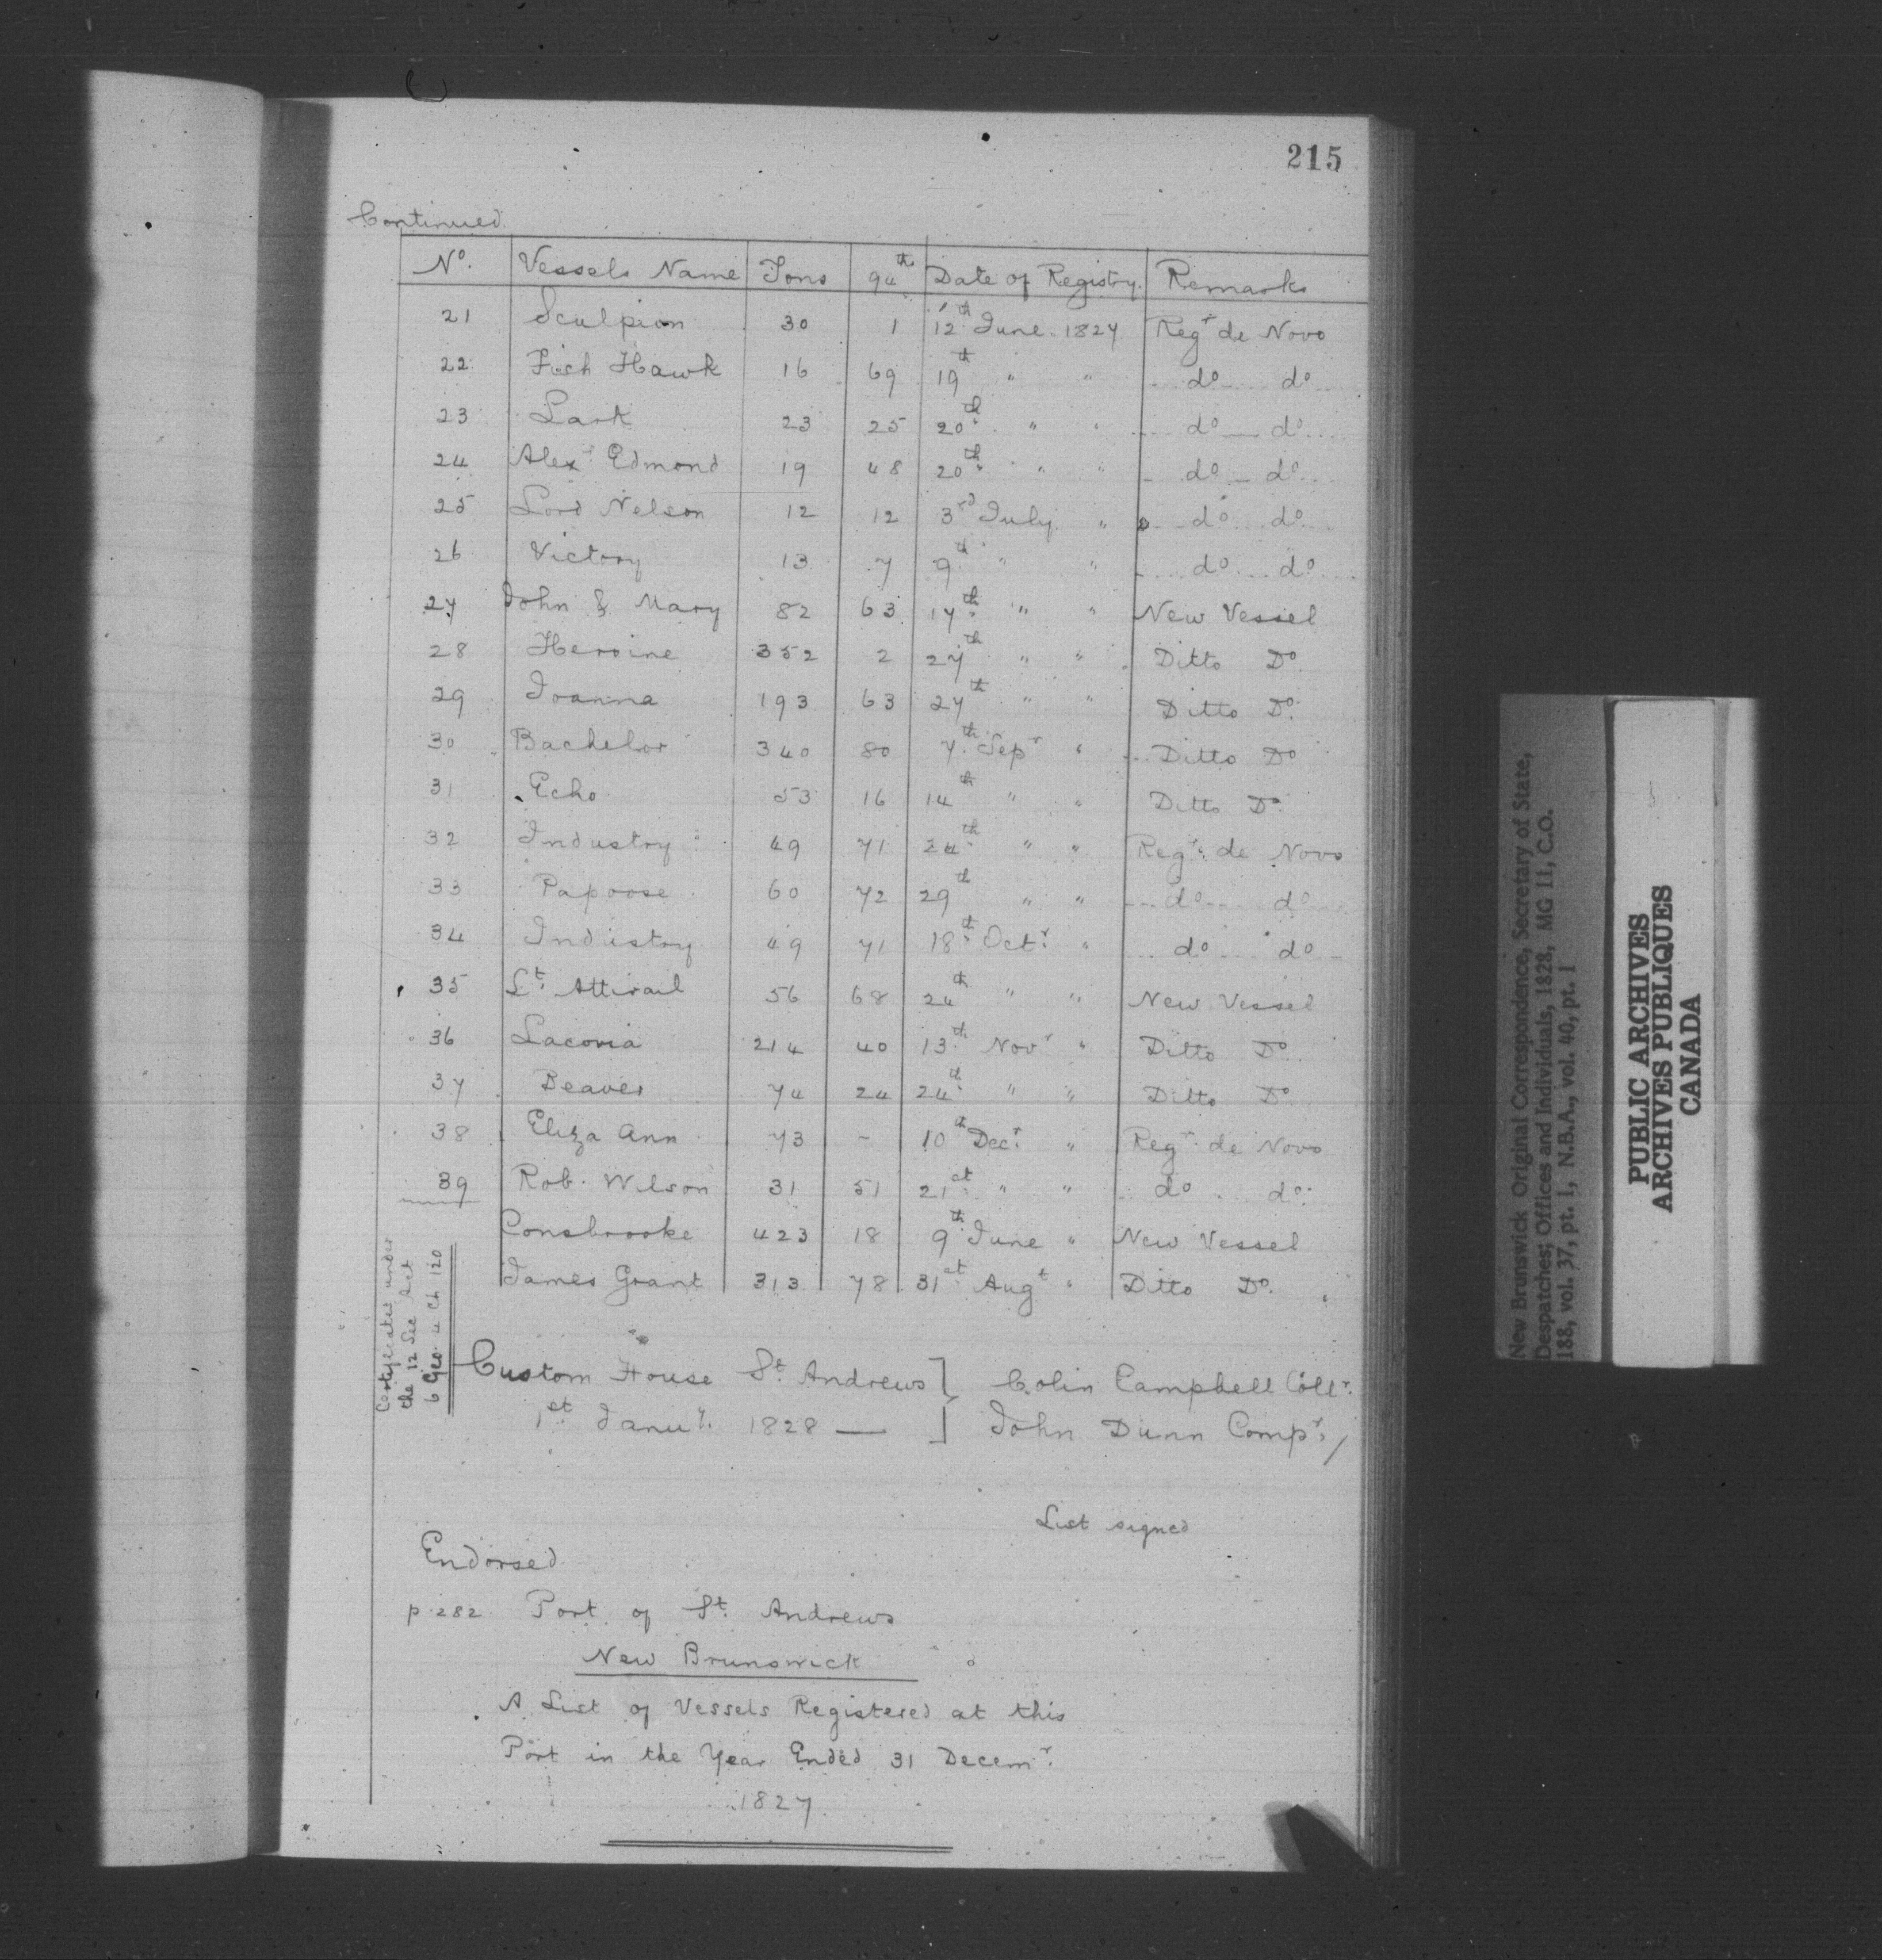 215
Continued
No. Vessels Name Tons 94th Date of Registry. Remarks
21 Sculpion 30 1 12th June 1827 Regr de Novo
22 Fish Hawk 16 69 19th " " do do
23 Lark 23 25 20th " " do do
24 Alexr Edmond 19 48 20th " " do do
25 Lord Nelson 12 12 3rd July " do do
26 Victory 13 7 9th " " do do
27 John & Mary 82 63 17th " " New Vessel
28 Heroine 352 2 27th " " Ditto Do
29 Joanna 193 63 27th " " Ditto Do
30 Bachelor 340 80 7th Sepr " Ditto Do
31 Echo 53 16 14th " " Ditto Do
32 Industry 49 71 24th " " Regr de Novo
33 Papoose 60 72 29th " " do do
34 Industry 49 71 18th Octr " do do
35 Lt Attirail 56 68 24th " " New Vessel
36 Lacovia 214 40 13th Novr " Ditto Do
37 Beaver 74 24 24th " " Ditto Do
38 Eliza Ann 73 - 10th Decr " Regr de Novo
39 Rob. Wilson 31 51 21st " " do do
Consbrooke 423 18 9th June " New Vessel
James Grant 313 78 31st Augt " Ditto Do
Certificates under
the 12 Sec Act
6 Geo. 4 Ch 120
Custom House St. Andrews ] Colin Campbell Collr.
1st Januy. 1828 — ] John Dunn Compr./
List signed
Endorsed
p 282 Port of St. Andrews
New Brunswick
A List of Vessels Registered at this
Port in the Year Ended 31 Decemr.
1827
New Brunswick Original Correspondence, Secretary of State,
Despatches; Offices and Individuals, 1828, MG 11, C.O.
188, vol. 37, pt. 1, N.B.A., vol. 40, pt. 1
PUBLIC ARCHIVES
ARCHIVES PUBLIQUES
CANADA